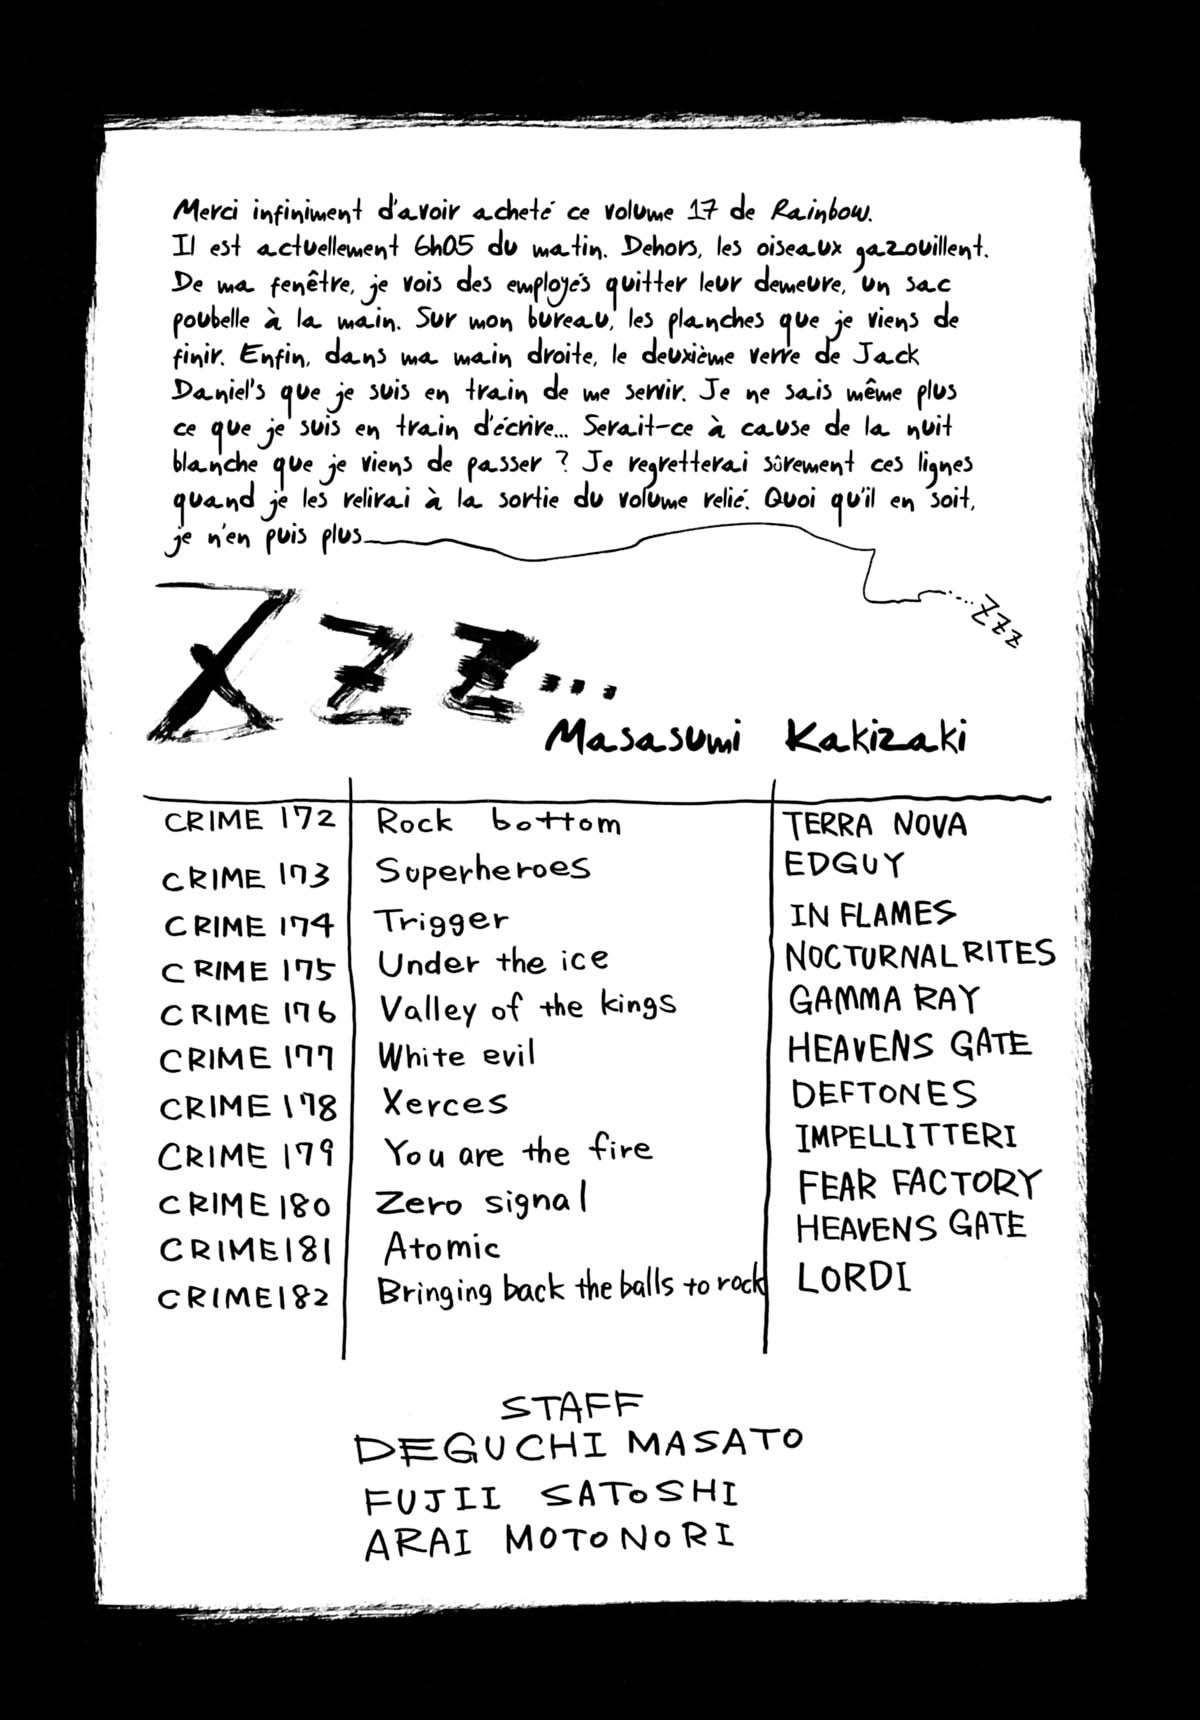 Merci infiniment d'avoir acheté ce volume 17 de Rainbow.
Il est actuellement 6h05 du matin. Dehors, les oiseaux gazouillent.
De ma fenêtre, je vois des employés quitter leur demeure, un sac
poubelle à la main. Sur mon bureau, les planches que je viens de
finir. Enfin, dans ma main droite, le deuxième verre de Jack
Daniel's que je suis en train de me servir. Je ne sais même plus
ce que je suis en train d'écrire... Serait-ce à cause de la nuit
blanche que je viens de passer ? Je regretterai sûrement ces lignes
quand je les relirai à la sortie du volume relié. Quoi qu'il en soit,
je n'en puis plus
....zzz
Zzz...
Masasumi Kakizaki
CRIME 172 Rock bottom TERRA NOVA
CRIME 173 Superheroes EDGUY
CRIME 174 Trigger IN FLAMES
CRIME 175 Under the ice NOCTURNAL RITES
CRIME 176 Valley of the kings GAMMA RAY
CRIME 177 White evil HEAVENS GATE
CRIME 178 Xerces DEFTONES
CRIME 179 You are the fire IMPELLITTERI
CRIME 180 Zero signal FEAR FACTORY
CRIME 181 Atomic HEAVENS GATE
CRIME 182 Bringing back the balls to rock LORDI
STAFF
DEGUCHI MASATO
FUJII SATOSHI
ARAI MOTONORI